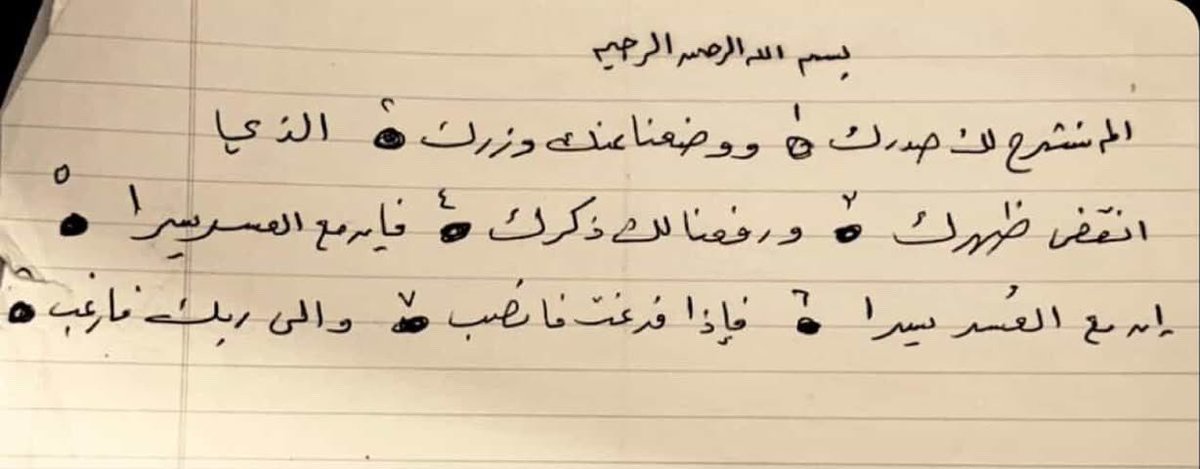 بسم الله الرحمن الرحيم
الم نشرح لك صدرك ١ ووضعنا عنك وزرك ٢ الذي
انقض ظهرك ٧ ورفعنا لك ذكرك ٤ فإن مع العسر يسرا ٥
إن مع العُسر يسرا ٦ فإذا فرغت فانصب ٧ والى ربك فارغب